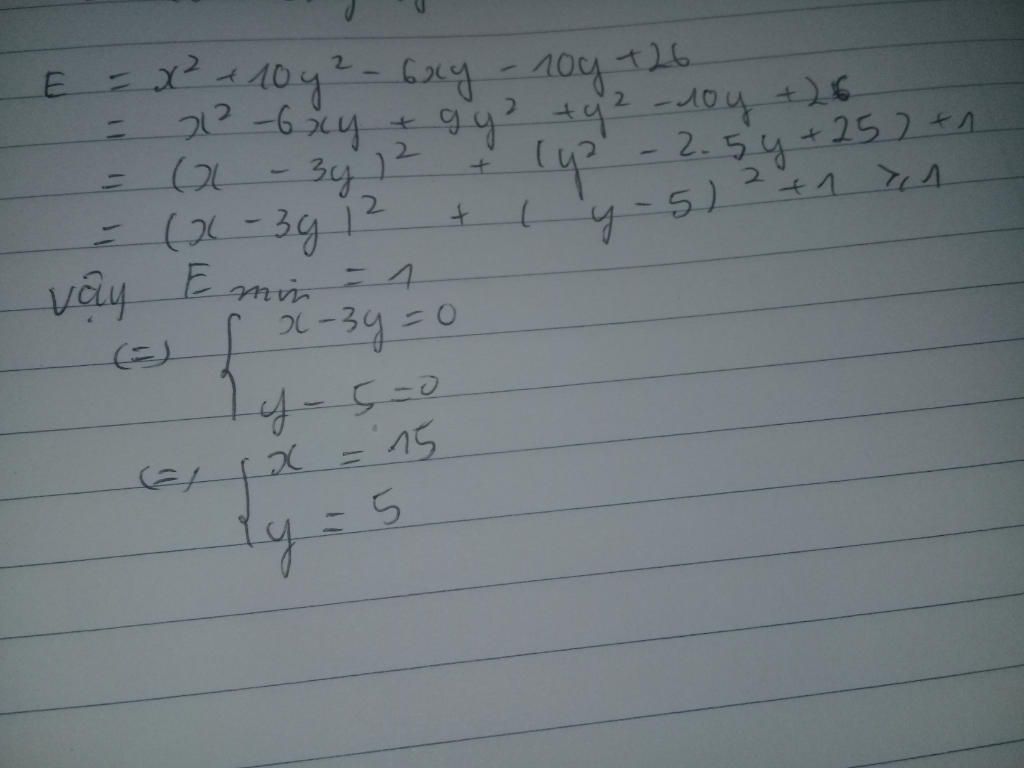 E = x² + 10y² - 6xy - 10y + 26
= x² - 6xy + 9y² + y² - 10y + 26
= (x - 3y)² + (y² - 2.5y + 25) + 1
= (x - 3y)² + (y - 5)² + 1 ≥ 1
Vậy E min = 1
(=) { x - 3y = 0
y - 5 = 0
(=) { x = 15
y = 5